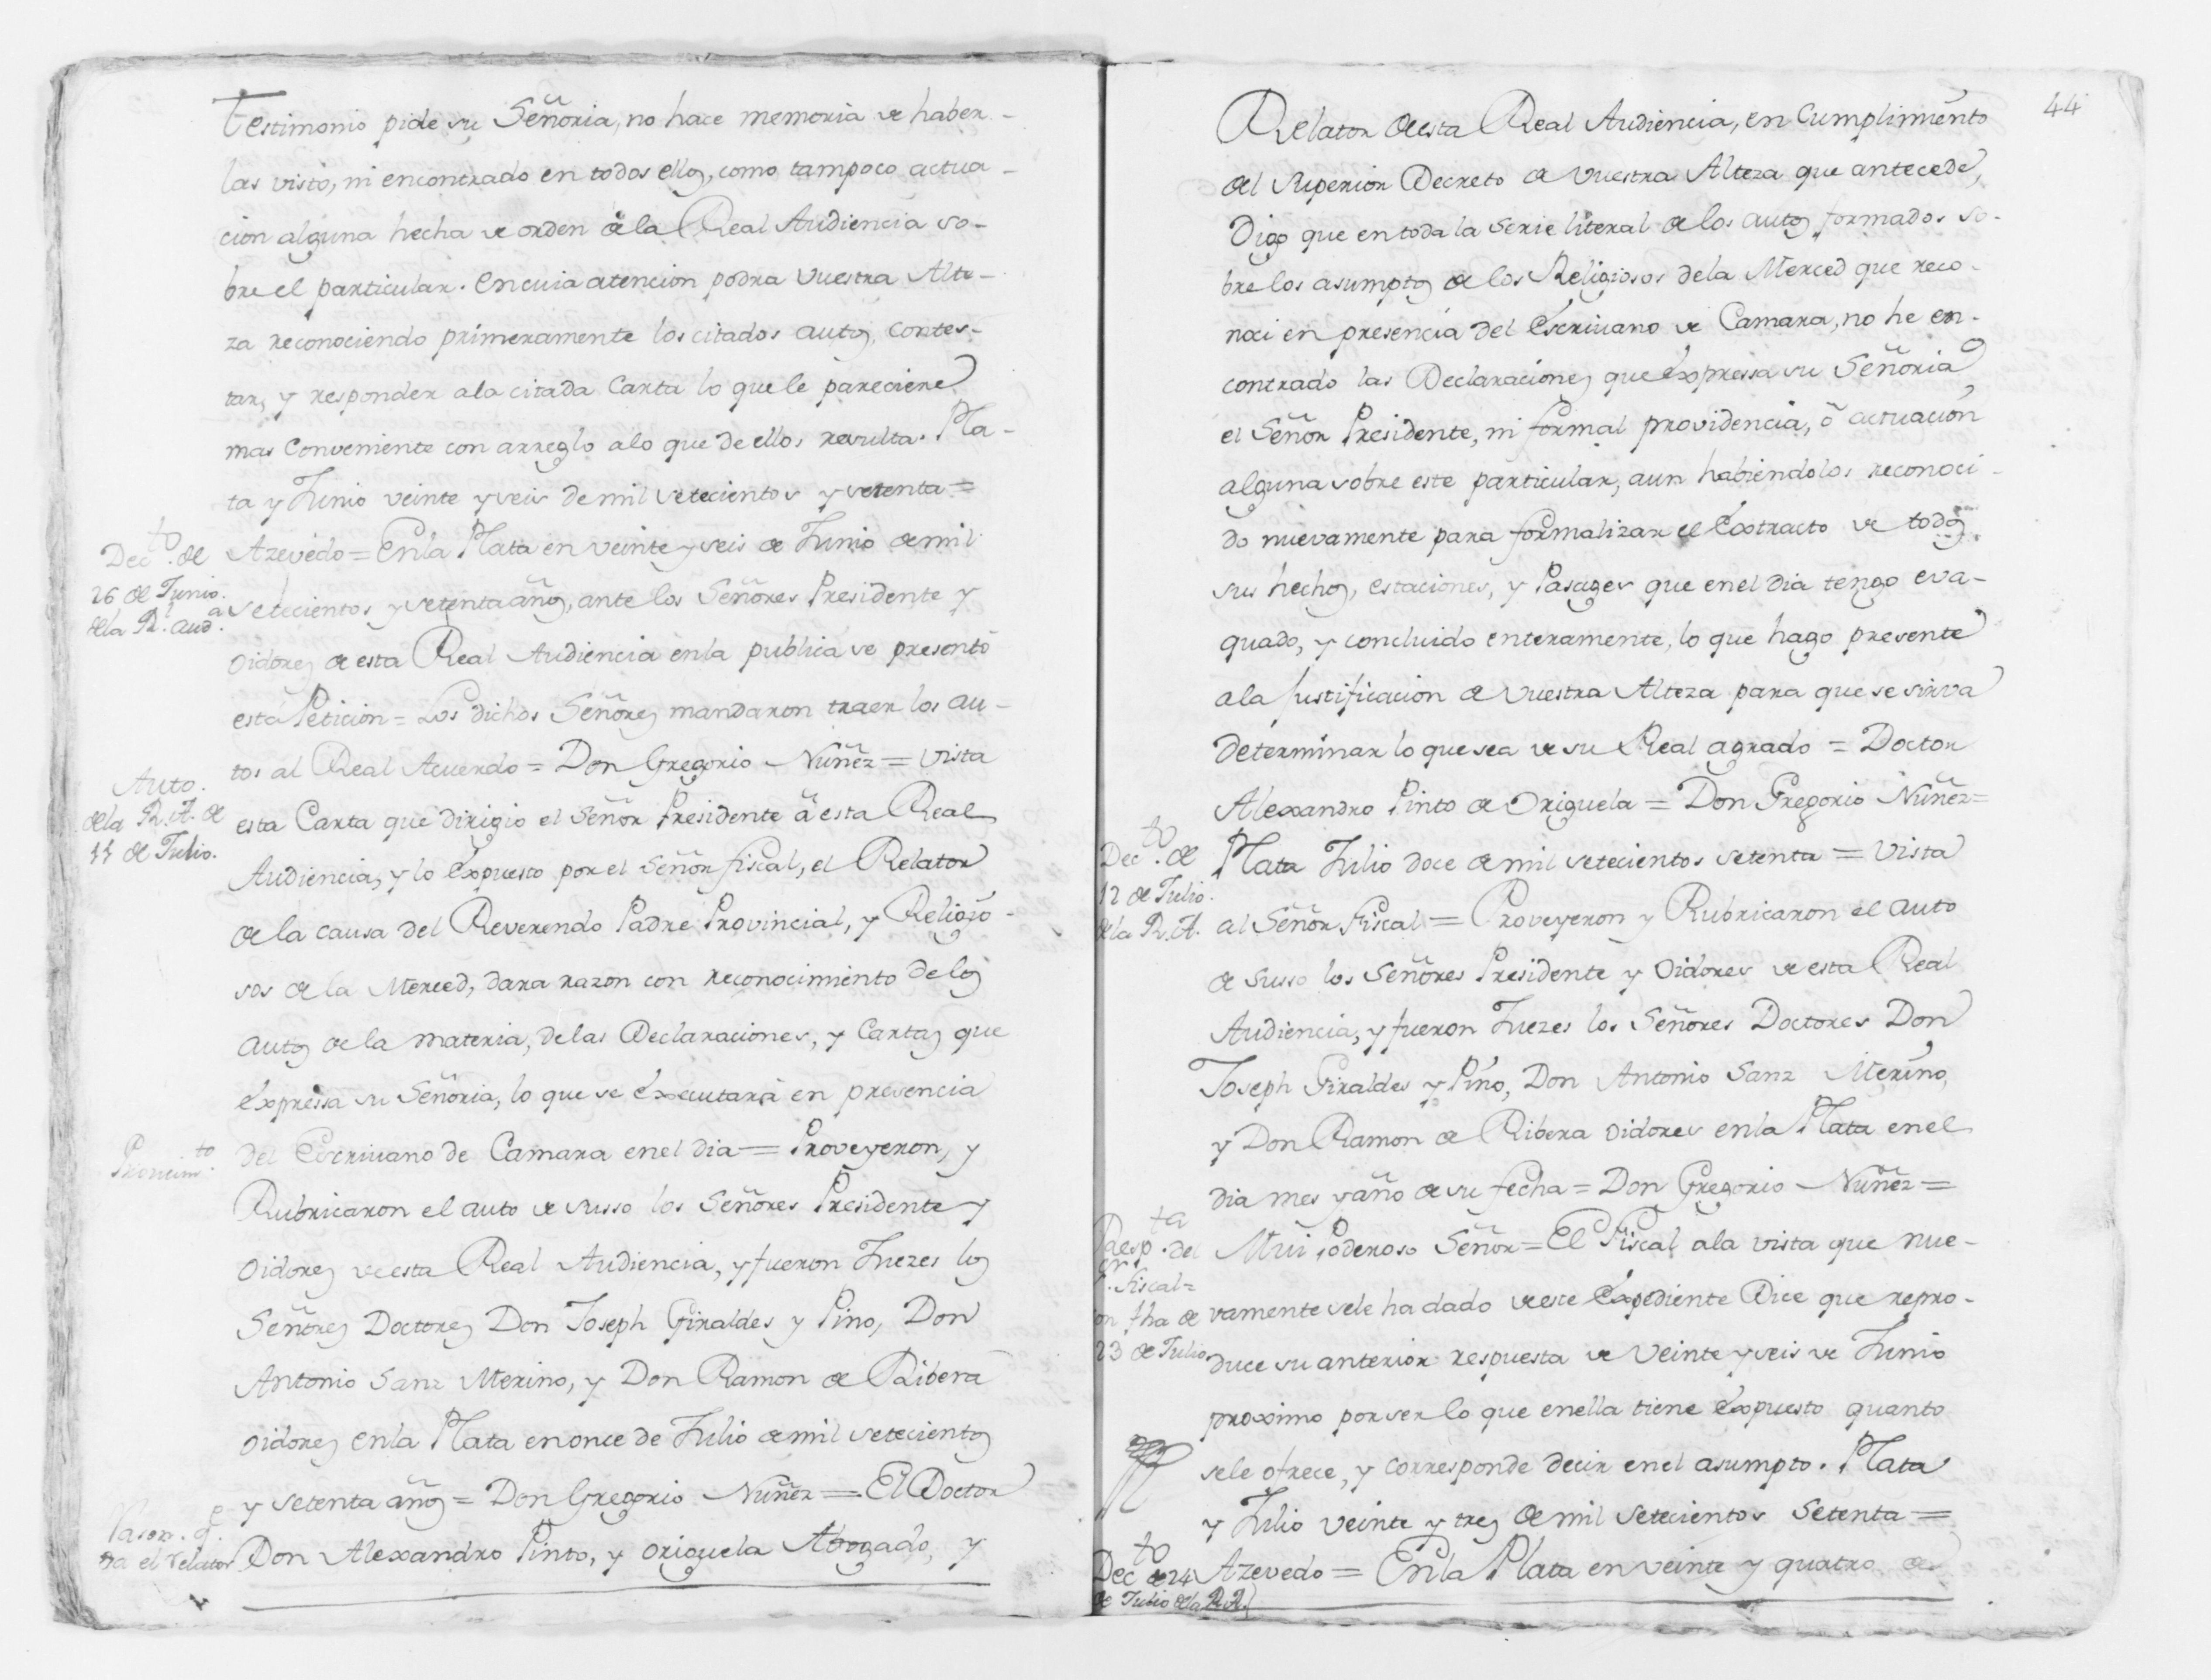 Testimonio pide su Señoria, no hace memoria de haber-
las visto, ni encontrado en todos ellos, como tampoco actua-
cion alguna hecha de orden de la Real Audiencia so-
bre el particular. En cuia atencion podra Vuestra Alte-
za reconociendo primeramente los citados autos, contes-
tar, y responder a la citada Carta lo que le pareciere
mas conveniente con arreglo a lo que de ellos resulta. Pla-
ta y Junio veinte y seis de mil setecientos y setenta =
Dec.to de
26 de Junio.
de la R.l Aud.a
Azevedo = En la Plata en veinte y seis de Junio de mil
setecientos y setenta años, ante los Señores Presidente y
Oidores de esta Real Audiencia en la publica se presentó
esta Peticion = Los dichos Señores mandaron traer los au-
tos al Real Acuerdo = Don Gregorio Nuñez = Vista
Auto.
de la R. A. de
11 de Julio.
esta Carta que dirigio el Señor Presidente á esta Real
Audiencia, y lo expuesto por el Señor fiscal, el Relator
de la causa del Reverendo Padre Provincial, y Religio-
sos de la Merced, dara razon con reconocimiento de los
autos de la materia, de las Declaraciones, y Cartas que
expressa su Señoria, lo que se executará en presencia
Proveim.to
del Escrivano de Camara en el dia = Proveyeron, y
Rubricaron el auto de susso los Señores Presidente y
Oidores de esta Real Audiencia, y fueron Juezes los
Señores Doctores Don Joseph Giraldes y Pino, Don
Antonio Sanz Merino, y Don Ramon de Ribera
Oidores en la Plata en once de Julio de mil setecientos
y setenta años = Don Gregorio Nuñez = El Doctor
Rason. q.e
da el relator
Don Alexandro Pinto, y Origuela Abogado, y
44
Relator de esta Real Audiencia, en Cumplimiento
del Superior Decreto de Vuestra Alteza que antecede,
Digo que en toda la serie literal de los autos formados so-
bre los asumptos de los Religiosos de la Merced que reco-
noci en presencia del Escrivano de Camara, no he en-
contrado las Declaraciones que expressa su Señoria
el Señor Presidente, ni formal providencia, ó actuacion
alguna sobre este particular, aun habiendolos reconoci-
do nuevamente para formalizar el Extracto de todos
sus hechos, estaciones, y Pasages que en el dia tengo eva-
quado, y concluido enteramente, lo que hago presente
a la Justificacion de Vuestra Alteza para que se sirva
determinar lo que sea de su Real agrado = Doctor
Alexandro Pinto de Origuela = Don Gregorio Nuñez =
Dec.to de
12 de Julio.
de la R. A.
Plata Julio doce de mil setecientos setenta = Vista
al Señor Fiscal = Proveyeron y Rubricaron el auto
de susso los Señores Presidente y Oidores de esta Real
Audiencia, y fueron Juezes los Señores Doctores Don
Joseph Giraldes y Pino, Don Antonio Sanz Merino,
y Don Ramon de Ribera Oidores en la Plata en el
dia mes y año de su fecha = Don Gregorio Nuñez =
Resp.ta del
Fiscal =
fha de
23 de Julio
Mui poderoso Señor = El Fiscal a la vista que nue-
vamente se le ha dado de este Expediente Dice que repro-
duce su anterior respuesta de Veinte y seis de Junio
proximo por ser lo que en ella tiene expuesto quanto
se le ofrece, y corresponde decir en el asumpto. Plata
y Julio veinte y tres de mil setecientos setenta =
Dec.to de 24
de Julio de la R. A.
Azevedo = En la Plata en veinte y quatro de